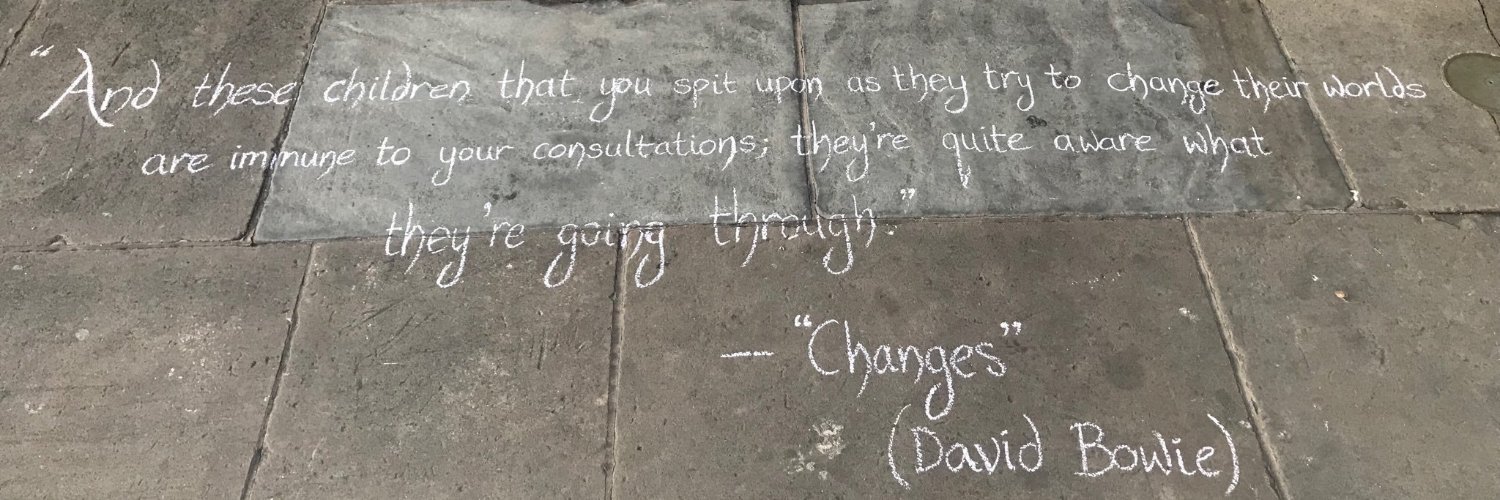 “And these children that you spit upon as they try to change their worlds
are immune to your consultations; they're quite aware what
they're going through.”
— “Changes”
(David Bowie)